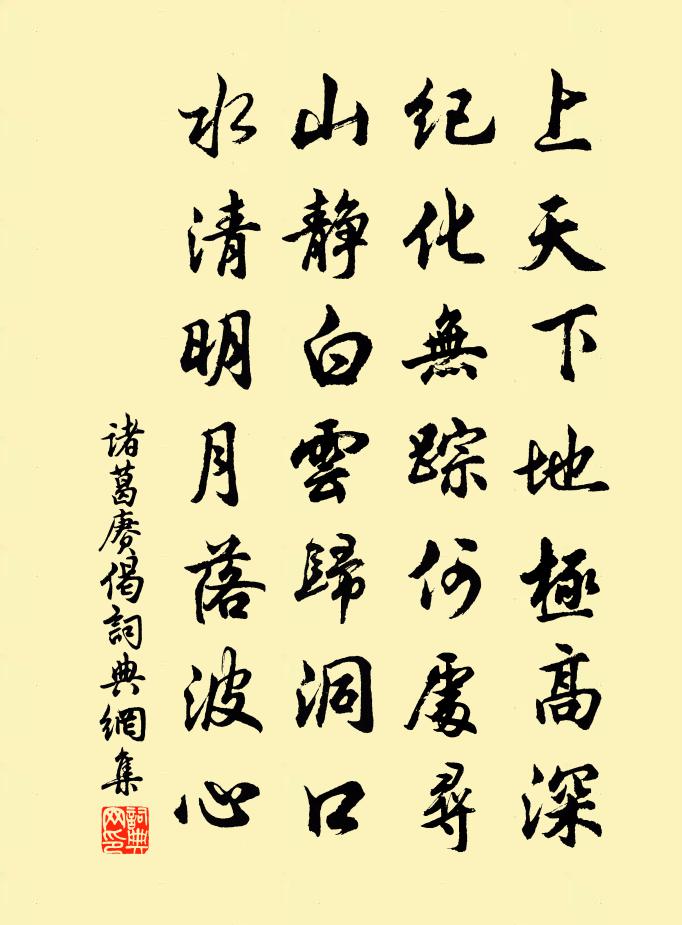 上天下地極高深
紀化無踪何處尋
山靜白雲歸洞口
水清明月落波心
诸葛赓偈詞典網集
詞典網印